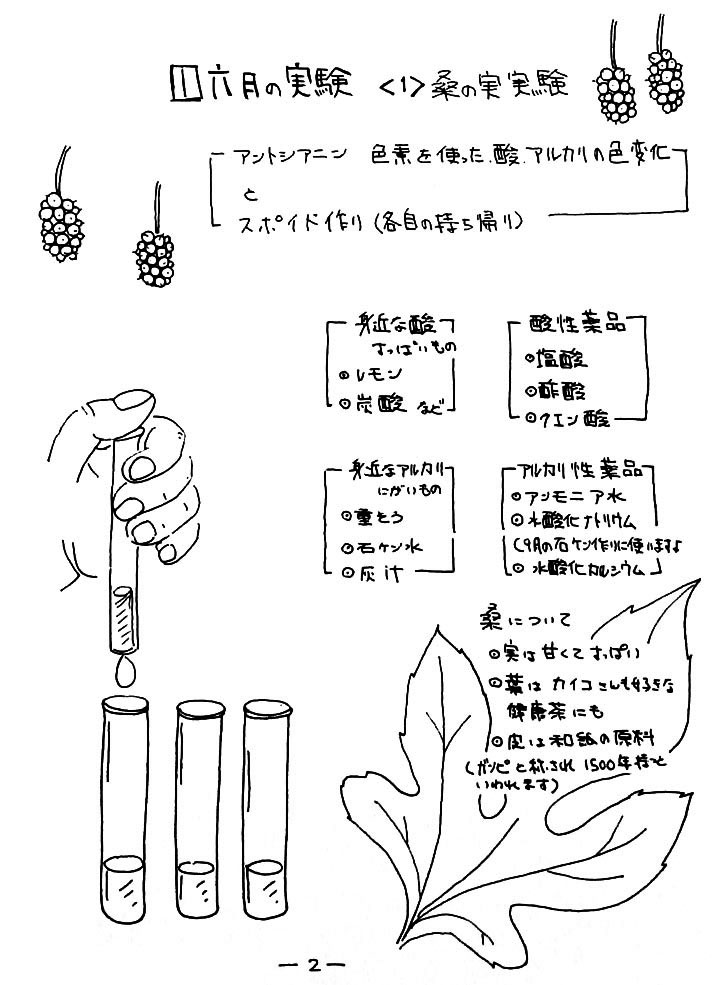 1 六月の実験 <1> 桑の実実験
アントシアニン 色素を使った.酸.アルカリの色変化
と
スポイド作り(各自の持ち帰り)
身近な酸
すっぱいもの
◎レモン
◎炭酸 など
酸性薬品
◎塩酸
◎酢酸
◎クエン酸
身近なアルカリ
にがいもの
◎重そう
◎石ケン水
◎灰汁
アルカリ性薬品
◎アンモニア水
◎水酸化ナトリウム
(9月の石ケン作りに使いますよ
◎水酸化カルシウム
桑について
◎実は甘くてすっぱい
◎葉はカイコさんも好きな
健康茶にも
◎皮は和紙の原料
(ガンピと称され 1500年持つと
いわれます)
－2－